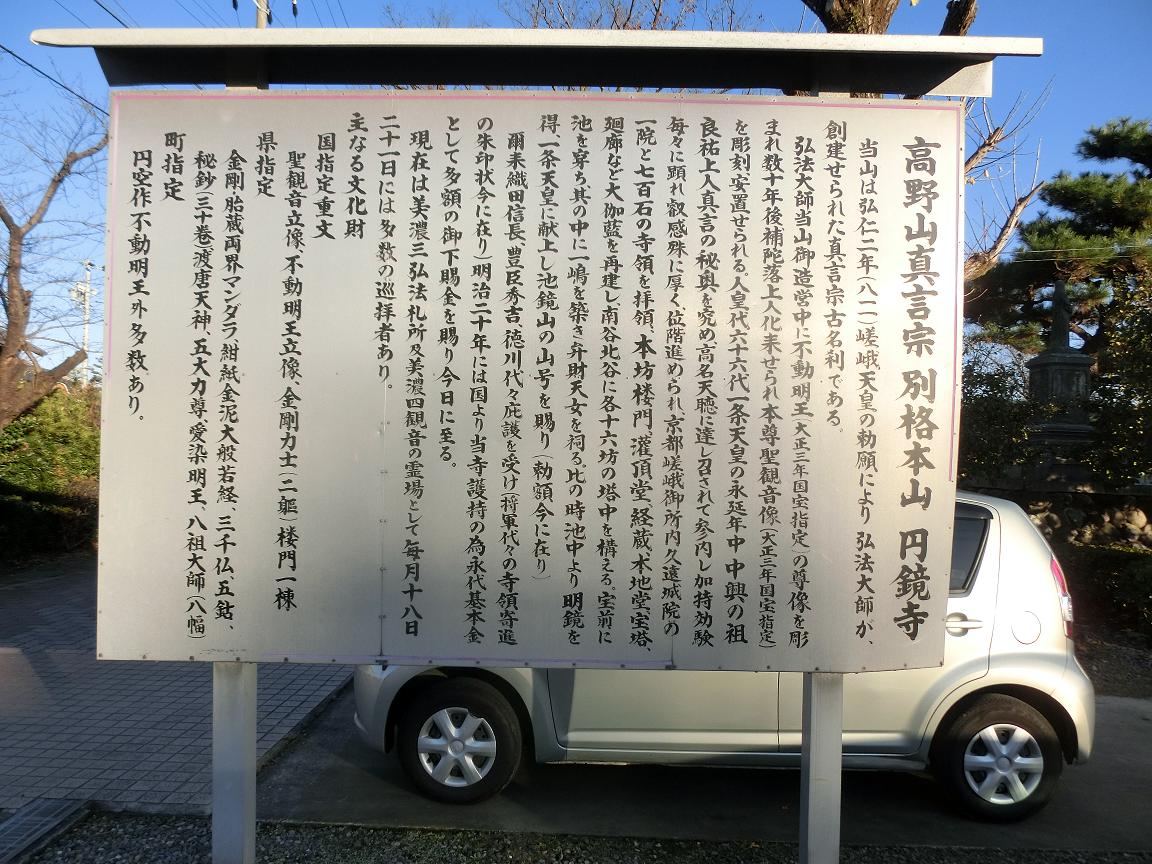 高野山真言宗 別格本山 円鏡寺
当山は弘仁二年(八一一)嵯峨天皇の勅願により弘法大師が、
創建せられた真言宗古名刹である。
弘法大師当山御造営中に不動明王(大正三年国宝指定)の尊像を彫
まれ数十年後補陀落上人化来せられ本尊聖観音像(大正三年国宝指定)
を彫刻安置せられる。人皇代六十六代一条天皇の永延年中中興の祖
良祐上人真言の秘奥を究め高名天聴に達し召されて参内し加持効験
毎々に顕れ叡感殊に厚く位階進められ京都嵯峨御所内久遠城院の
一院と七百石の寺領を拝領、本坊楼門、灌頂堂、経蔵、本地堂、宝塔、
廻廊など大伽藍を再建し南谷北谷に各十六坊の塔中を構える。宝前に
池を穿ち其の中に一嶋を築き弁財天女を祠る。比の時池中より明鏡を
得一条天皇に献上し池鏡山の山号を賜り(勅額今に在り)
爾来織田信長、豊臣秀吉、徳川代々庇護を受け(将軍代々の寺領寄進
の朱印状今に在り)明治二十年には国より当寺護持の為永代基本金
として多額の御下賜金を賜り今日に至る。
現在は美濃三弘法札所及美濃四観音の霊場として毎月十八日
二十一日には多数の巡拝者あり。
主なる文化財
国指定重文
聖観音立像、不動明王立像、金剛力士(二軀)楼門一棟
県指定
金剛胎蔵両界マンダラ、紺紙金泥大般若経、三千仏、五鈷、
秘鈔(三十巻)渡唐天神、五大力尊、愛染明王、八祖大師(八幅)
町指定
円空作不動明王外多数あり。